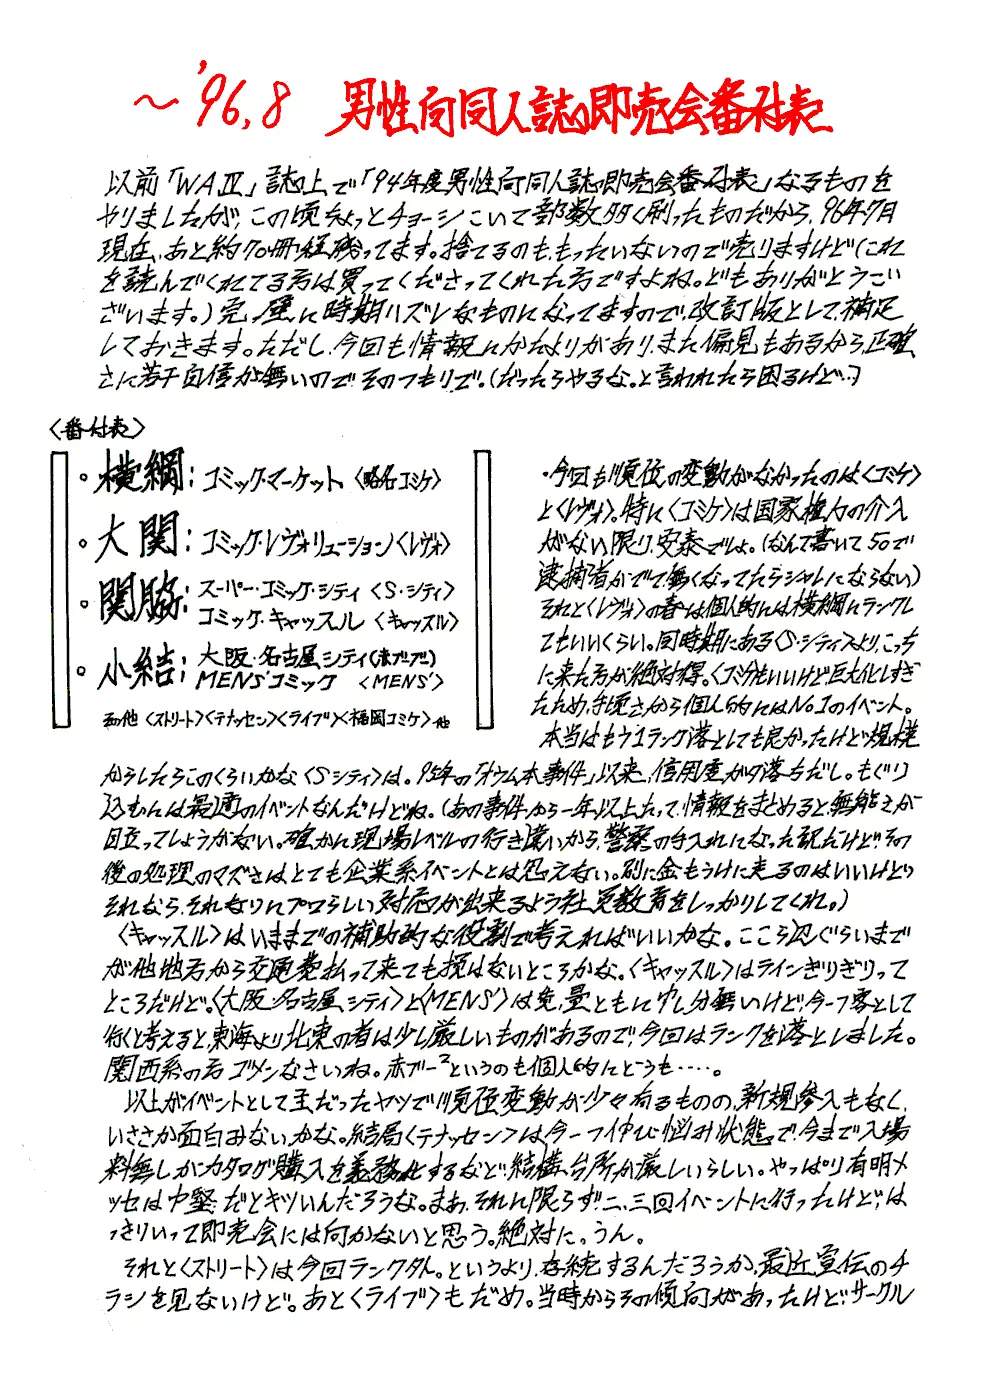 ～'96,8 男性向同人誌即売会番付表
以前「WAⅣ」誌上で「94年度男性向同人誌即売会番付表」なるものを
やりましたが、この頃ちょっとチョーシこいて部数多く刷ったものだから、96年7月
現在、あと約70冊程残ってます。捨てるのももったいないので売りますけど（これ
を読んでくれてる方は買ってくださってくれた方ですよね。どもありがとうござ
ざいます。）完ペキに時期ハズレなものになってますので、改訂版として、補足
しておきます。ただし、今回も情報にかたよりがあり、また偏見もあるから、正確
さに若干自信が無いので、そのつもりで。（だったらやるな。と言われたら困るけど…）
〈番付表〉
・横綱：コミック・マーケット〈略名コミケ〉
・大関：コミック・レヴォリューション〈レヴォ〉
・関脇：スーパー・コミック・シティ〈S・シティ〉
コミック・キャッスル〈キャッスル〉
・小結：大阪・名古屋シティ(赤ブブ)
MENS'コミック〈MENS'〉
その他〈ストリート〉〈テナッセン〉〈ライブ〉〈福岡コミケ〉他
・今回も順位の変動がなかったのは〈コミケ〉
と〈レヴォ〉。特に〈コミケ〉は国家権力の介入
がない限り、安泰でしょ。（なんて書いて50で
逮捕者がでて無くなってたらシャレにならない）
それと〈レヴォ〉の春は個人的には横綱にランクし
てもいいくらい。同時期にある〈S・シティ〉より、こっち
に来た方が絶対得。〈コミケ〉もいいけど巨大化しすぎ
たため、手頃さから個人的にはNo.1のイベント。
本当はもう1ランク落としても良かったけど規模
からしたらこのくらいかな〈Sシティ〉は。95年の「オウム本事件」以来、信用度がた落ちだし。もぐり
込むんは最適のイベントなんだけどね。（あの事件から一年以上たって、情報をまとめると無能さが
目立ってしょうがない。確かに現場レベルの行き違いから、警察の手入れになった訳だけど、その
後の処理のマズさはとても企業系イベントとは思えない。別に金もうけに走るのはいいけど
それなら、それなりにプロらしい対応が出来るよう社員教育をしっかりしてくれ。）
〈キャッスル〉はいままでの補助的な役割で考えればいいかな。ここら辺ぐらいまで
が他地方から交通費払って来ても損はないところかな。〈キャッスル〉はラインぎりぎりって
ところだけど。〈大阪・名古屋シティ〉と〈MENS'〉は質、量ともに申し分無いけど、今一つ客として
行くと考えると、東海より北東の者は少し厳しいものがあるので、今回はランクを落としました。
関西系の方ゴメンなさいね。赤ブー²というのも個人的にどうも……。
以上がイベントとして主だったヤツで順位変動が少々有るものの、新規参入もなく、
いささか面白みないかな。結局〈テナッセン〉は、今一つ伸び悩み状態で、今まで入場
料無しがカタログ購入を義務化するなど、結構、台所が厳しいらしい。やっぱり有明メ
ッセは中堅だとキツいんだろうな。まあ、それに限らず、二、三回イベントに行ったけど、は
っきりいって即売会には向かないと思う。絶対に。うん。
それと〈ストリート〉は今回ランク外。というより、存続するんだろうか、最近、宣伝のチ
ラシを見ないけど。あと〈ライブ〉もだめ。当時からその傾向があったけど、サークル